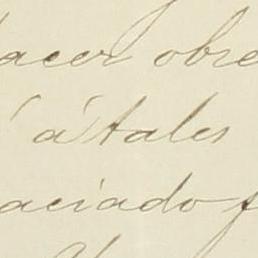 hacer obre
á tales
aciado f